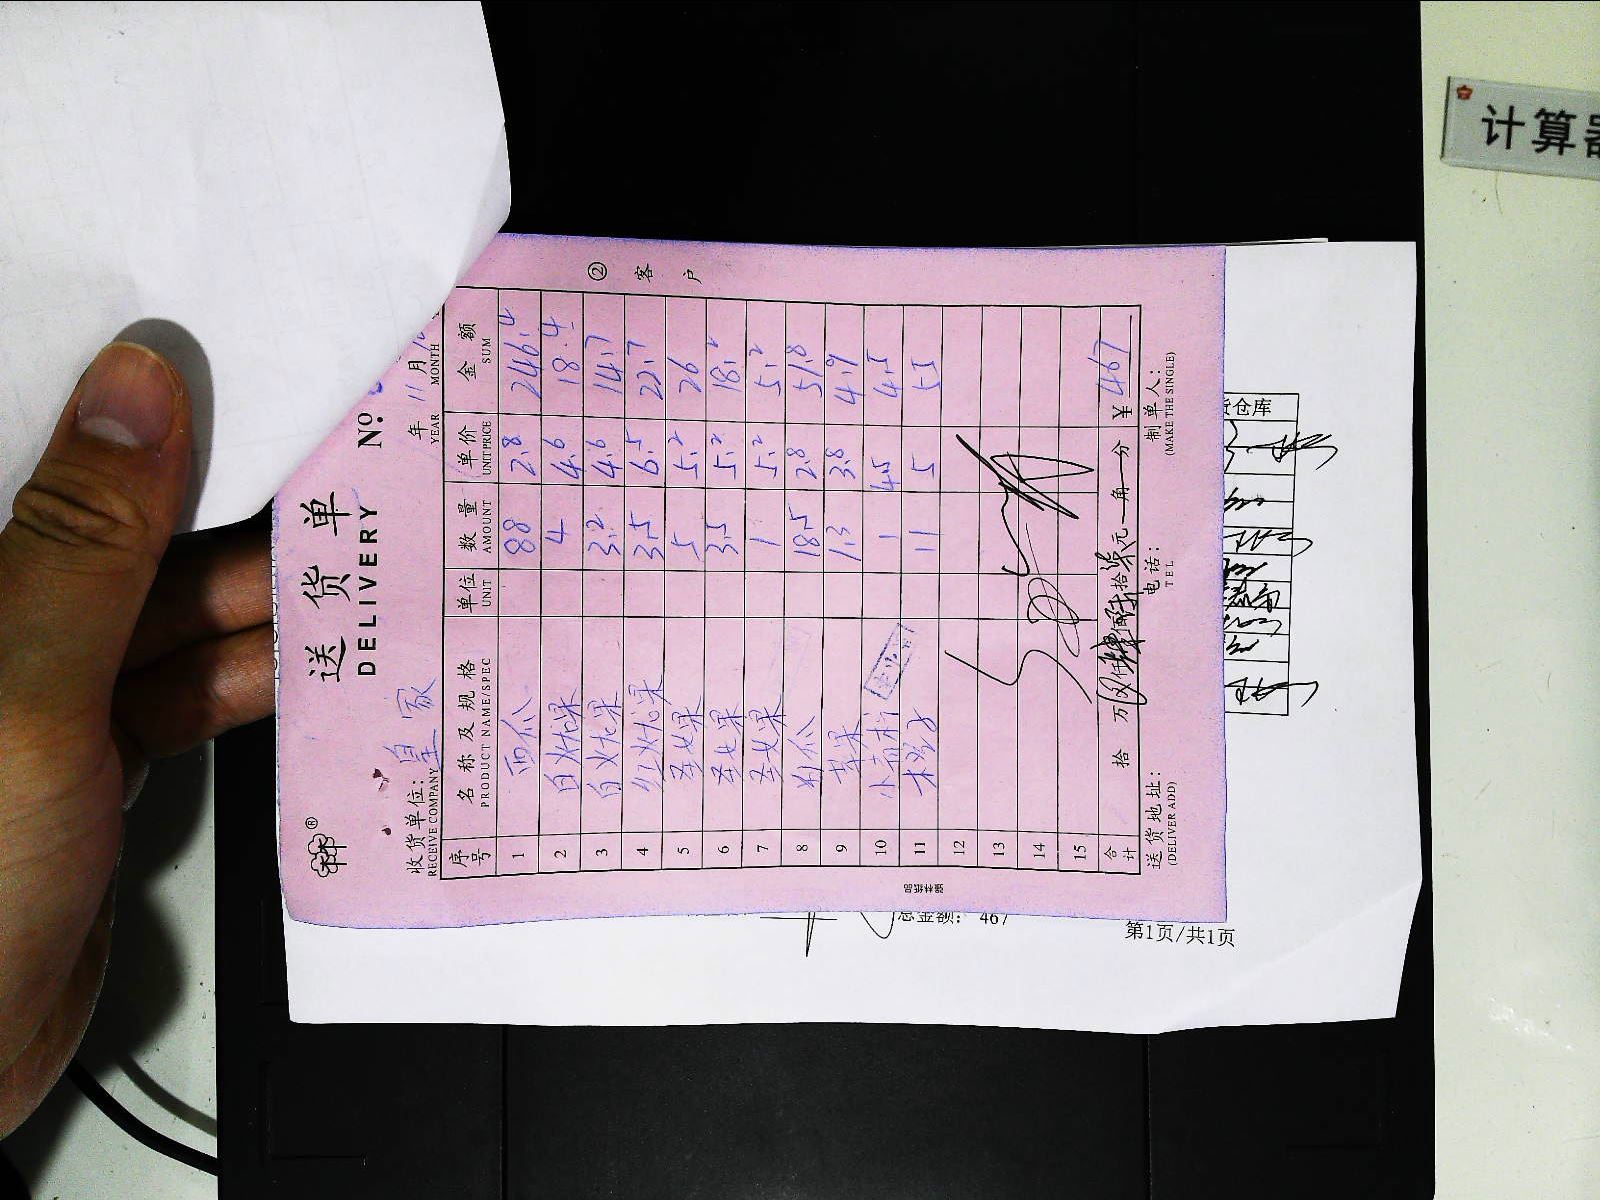 计算器
② 客户
送货单
DELIVERY
№
收货单位: 皇家
RECEIVE COMPANY
年 11 月
YEAR MONTH
序号 名称及规格 单位 数量 单价 金额
PRODUCT NAME/SPEC UNIT AMOUNT UNIT PRICE SUM
1 西瓜 88 2.8 246.4
2 4 4.6 18.4
3 3.2 4.6 14.7
4 3.5 6.5 22.7
5 圣女果 5 5.2 26
6 圣女果 3.5 5.2 18.2
7 圣女果 1 5.2 5.2
8 18.5 2.8 51.8
9 苹果 1.3 3.8 4.9
10 1 4.5 4.5
11 11 5 55
12
13
14
15
合计 拾 万 仟 佰 拾柒元 角 分 ¥ 467
送货地址: 电话: 制单人:
(DELIVER ADD) TEL (MAKE THE SINGLE)
强林纸品
仓库
总金额: 467
第1页/共1页